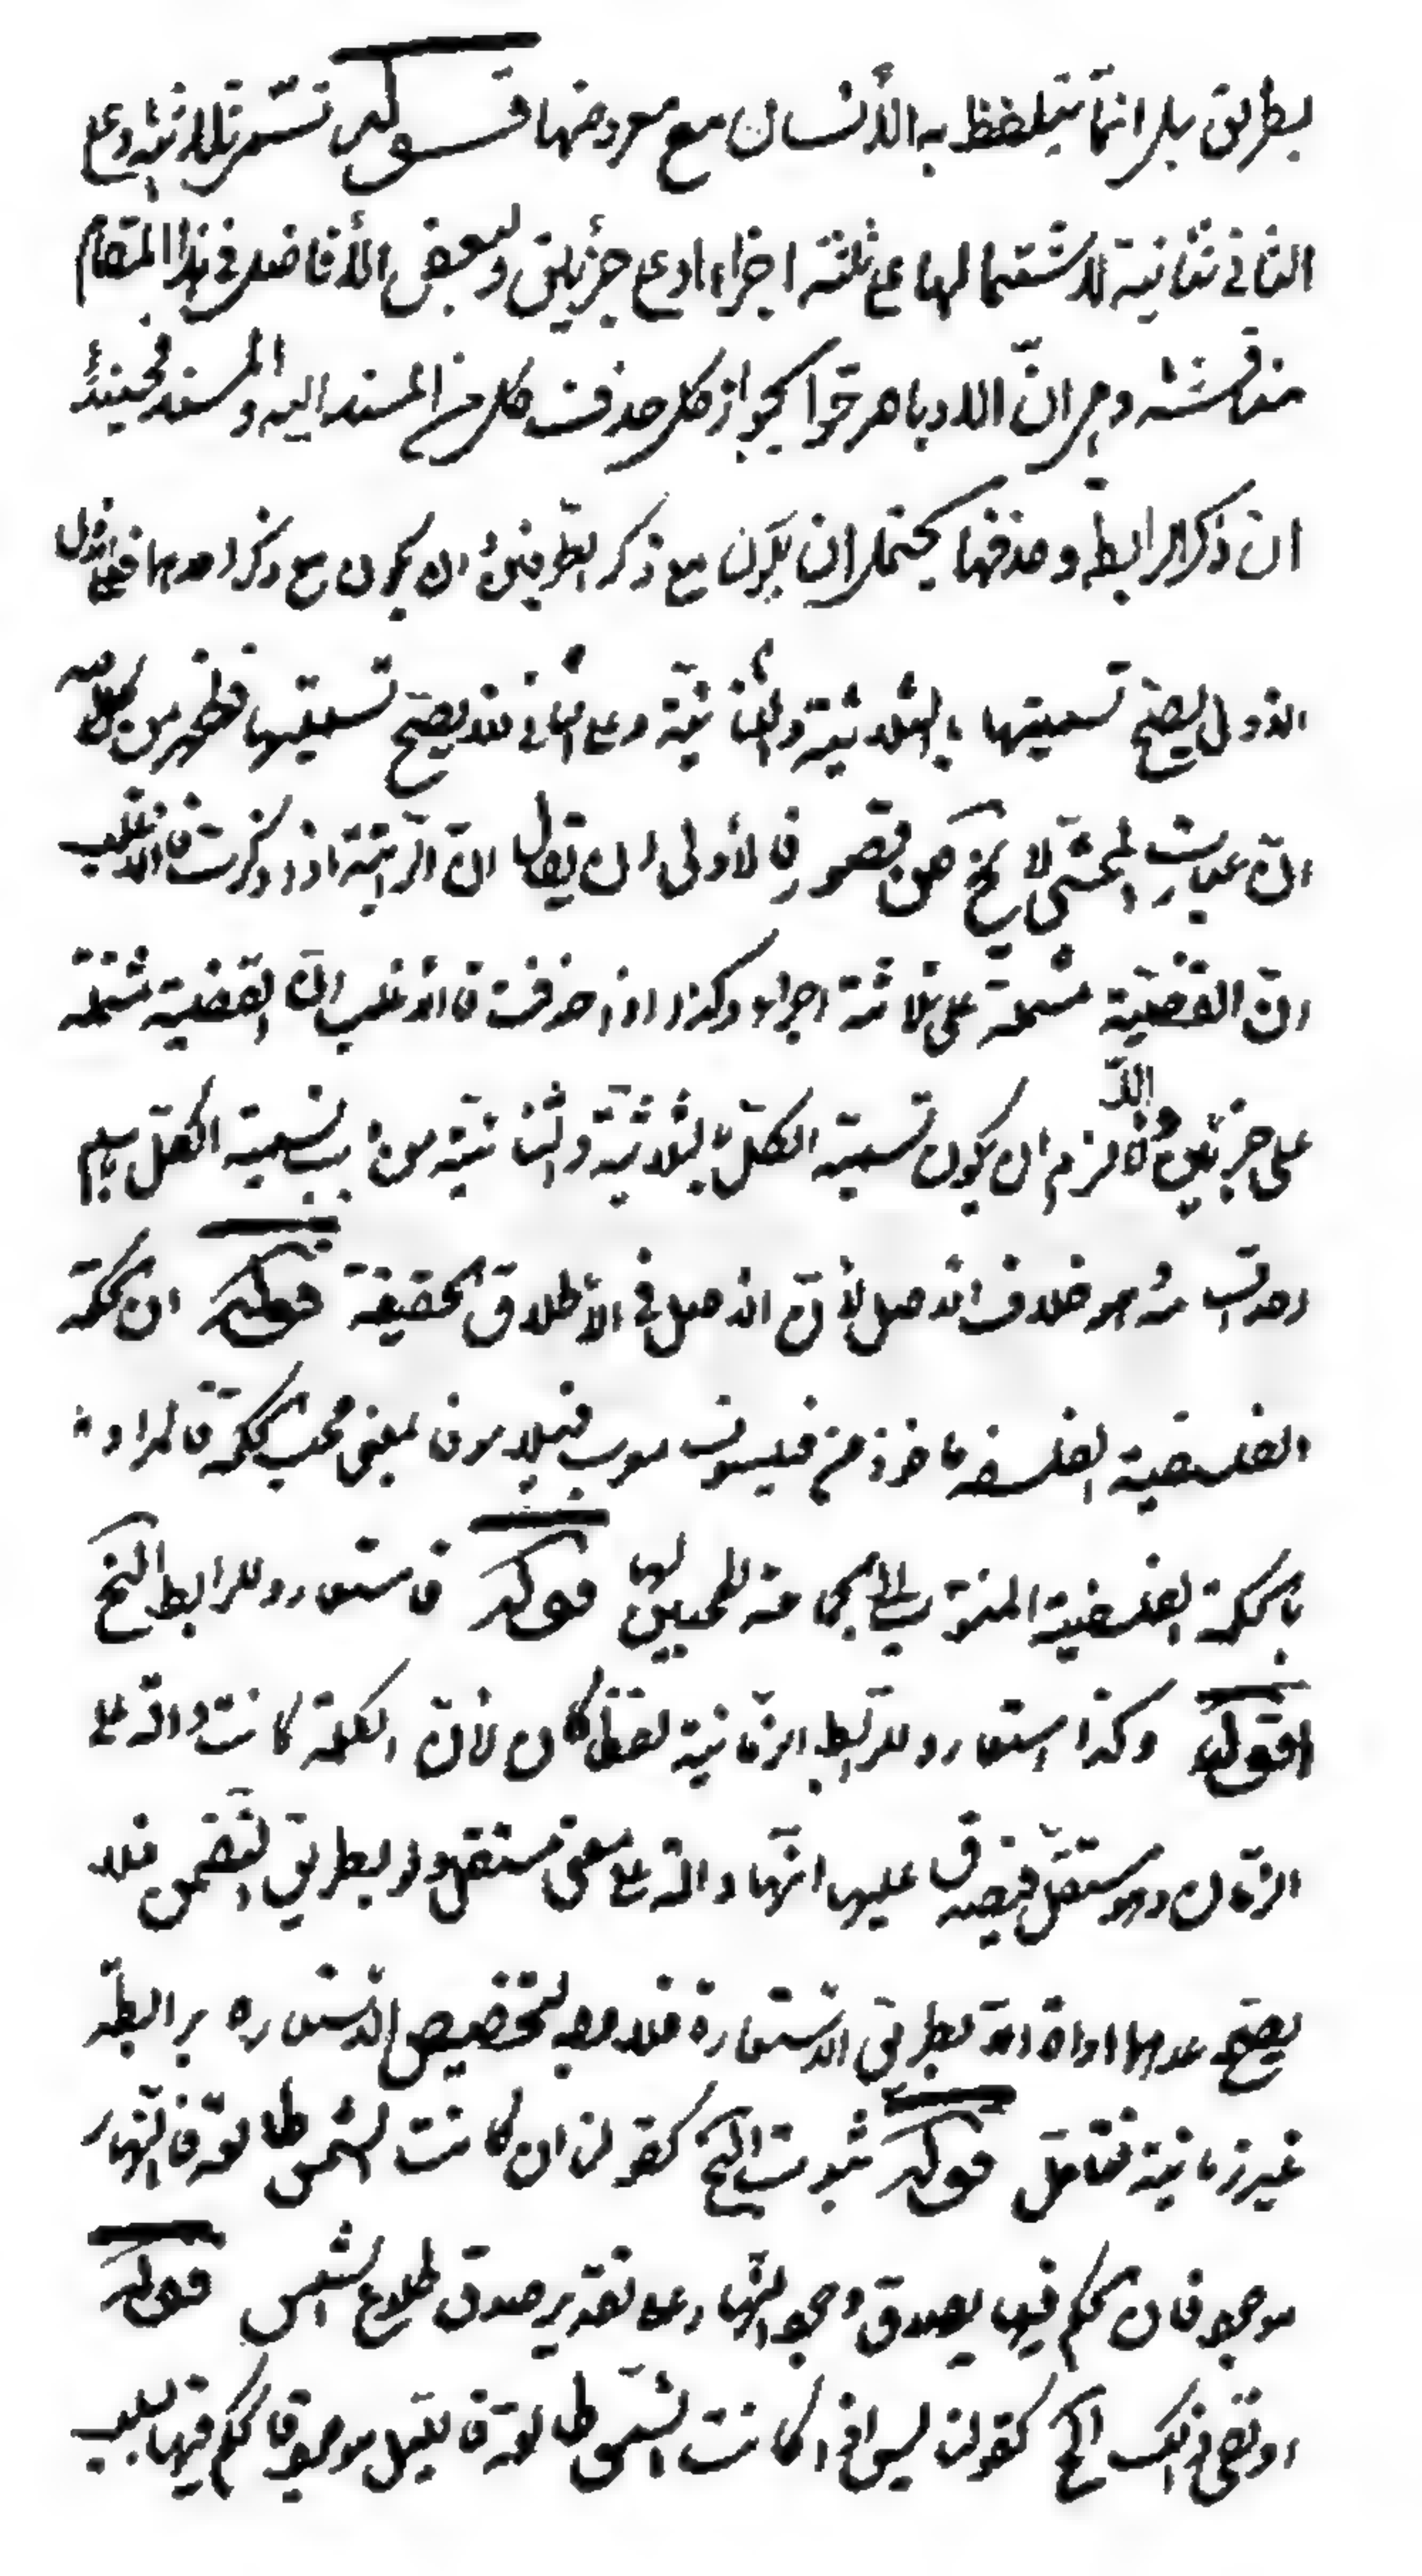 بطريق بل انّما يتلفظ به الأنسان مع معروضها قوله تسمّى ثلاثية وعلى
الثانى ثنائية لاشتمالها على ثلثة اجزاء او على جزئين ولبعض الأفاضل فى هذا المقام
مناقشته وهى انّ الادباء صرحوا بجواز كل حذف كل من المسند اليه والمسند فحينئذ
ان ذكر الرابطة وحذفها يحتمل ان يكون مع ذكر الطرفين وان يكون مع ذكر احدهما فعلى
الاول يصحّ تسميتها بالثلاثية والثنائية وعلى الثانى فلا يصحّ تسميتها فظهر من كلامه
انّ عبارة المحشى لا يخ عن قصور فالأولى ان يقال انّ الرابطة اذا ذكرت فالاغلب
انّ القضيّة مشتملة على ثلاثة اجزاء وكذا اذا حذفت فالاغلب انّ القضية مشتملة
على جزئين والّا لزم ان يكون تسمية الكلّ بالثلاثية والثنائية من باب تسمية الكل باسم
وهو خلاف الاصل لأنّ الاصل فى الأطلاق الحقيقة قوله ان الحكمة
الفلسفية الفلسفه ماخوذ من فيلسوف معرب فيلاسوفا بمعنى محب الحكمة فالمراد
بالحكمة الفلسفية المنسوبة الى جماعة المحبين لها قوله فاستعاروا للرابطة الخ
اقول وكذا استعاروا للرابطة الزمانية لفظ كان لأنّ الكلمة كانت دالّة على
الزمان وهو مستقلّ فيصدق عليها انّها دالة على معنى مستقل ولو بطريق التضمن فلا
يصح عدها اداة الّا بطريق الاستعارة فلا وجه لتخصيص الاستعاره برابطة
غير زمانية فتأمّل قوله ثبوت الخ كقولنا ان كانت الشمس طالعة فالنهار
موجود فان الحكم فيها بصدق وجود النهار على تقدير صدق طلوع الشمس قوله
او نفى ذلك الخ كقولنا ليس اذا كانت الشّمس طالعة فالليل موجود فالحكم فيها بسلب